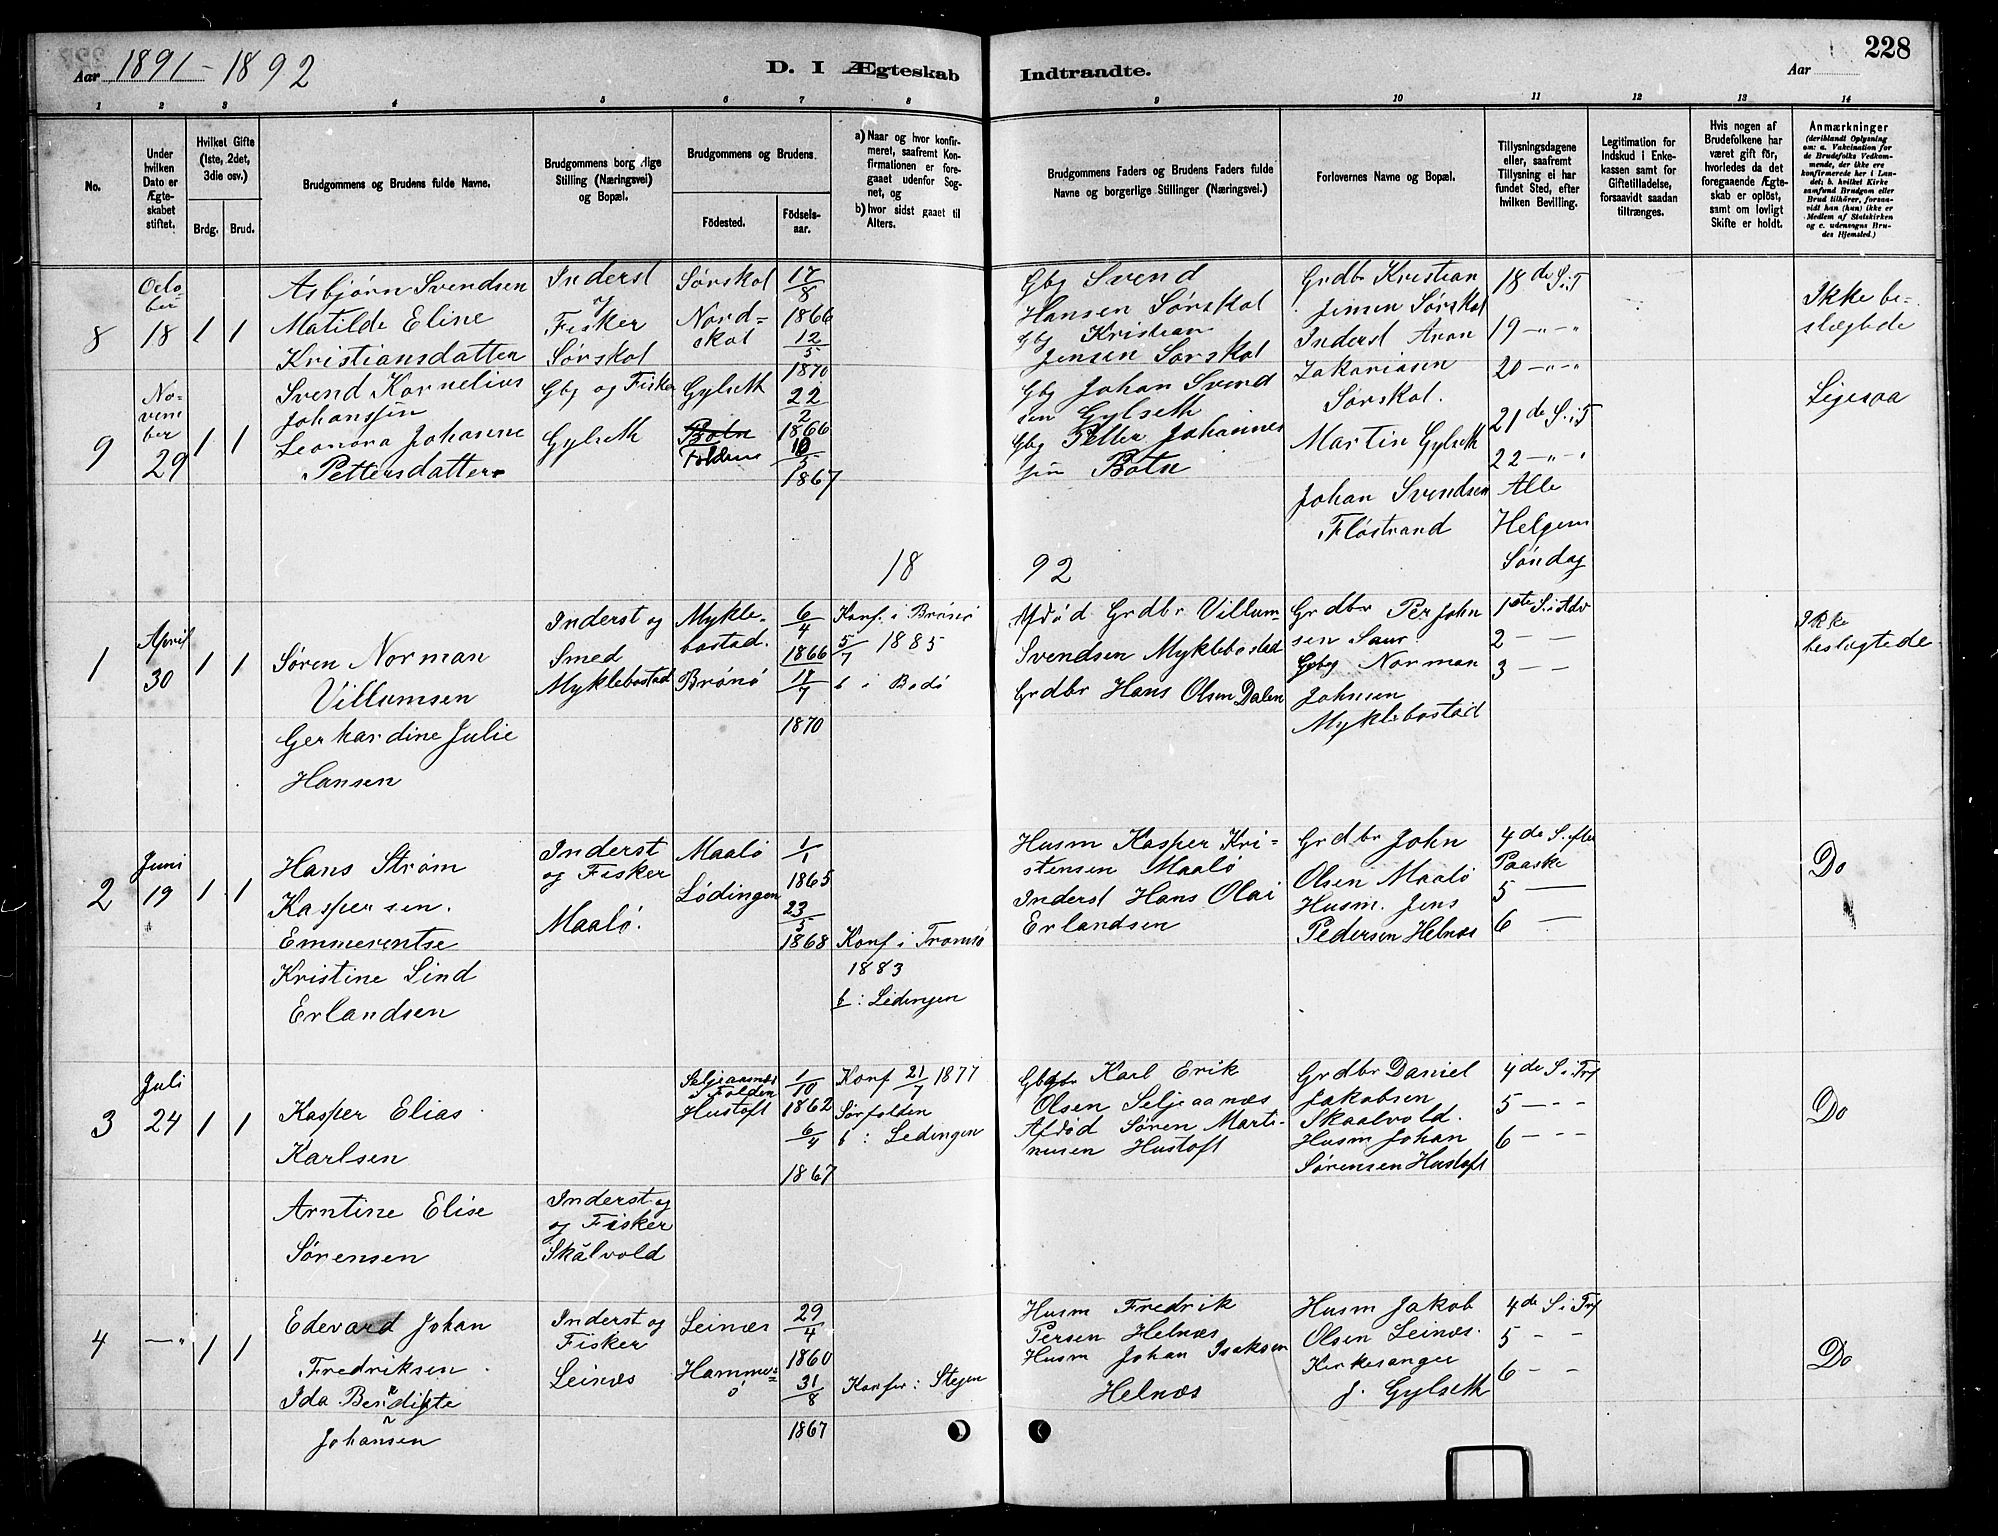 Aar 1891-1892
D. I Ægteskab
Indtrandte.
Aar
228
1 2 3 4 5 6 7 8 9 10 11 12 13 14
No.
Under
hvilken
Dato er
Ægte-
skabet
stiftet.
Hvilket Gifte
(1ste, 2det,
3die osv.)
Brdg. Brud.
Brudgommens og Brudens fulde Navne.
Brudgommens borgerlige
Stilling (Næringsvei)
og Bopæl.
Brudgommens og Brudens.
Fødested.
Fødsels-
aar.
a) Naar og hvor konfir-
meret, saafremt Kon-
firmationen er fore-
gaaet udenfor Sog-
net, og
b) hvor sidst gaaet til
Alters.
Brudgommens Faders og Brudens Faders fulde
Navne og borgerlige Stillinger (Næringsvei.)
Forlovernes Navne og Bopæl.
Tillysningsdagene
eller, saafremt
Tillysning ei har
fundet Sted, efter
hvilken Bevilling.
Legitimation for
Indskud i Enke-
kassen samt for
Giftetilladelse,
forsaavidt saadan
tiltrænges.
Hvis nogen af
Brudefolkene har
været gift før,
hvorledes da det
foregaaende Ægte-
skab er opløst,
samt om lovligt
Skifte er holdt.
Anmærkninger
(deriblandt Oplysning
om: a. Vakcination for
de Brudefolks Vedkom-
mende, der ikke ere
konfirmerede her i Lan-
det; b. hvilket Kirke
samfund Brudgom eller
Brud tilhører, forsaa-
vidt han (hun) ikke er
Medlem af Statskirken
og c. udensogns Bru-
des Hjemsted.)
8
Octo
ber
18
1 1
Asbjørn Svendsen
Matilde Eline
Kristiansdatter
Inderst
og
Fisker
Sørskot
Sørskot
Nord-
skot
17/8
1866
12/5
1870
Gbg Svend
Hansen Sørskot
Gbg Kristian
Jensen Sørskot
Grdbr Kristian
Jensen Sørskot
Inderst Aron
Zakariasen
Sørskot.
18 de S.i.T
19 -"-"
20 -"-"
Ikke be-
slægtede
9
No-
vem
ber
29
1 1
Svend Kornelius
Johanssen
Leonora Johanne
Pettersdatter
Gbg og Fisker
Gylseth
Gylseth
Botn
Folden
22/2
1866
10/5
1867
Gbg Johan Svend
sen Gylseth
Gbg Petter Johannes
sen Botn
Martin Gylseth
Johan Svendsen
Fløstrand
21 de S.i.T
22 -"-"
Alle
Helgens
Søndag
Ligesaa
18 92
1
April
30
1 1
Søren Norman
Villumsen
Gerhardine Julie
Hansen
Inderst og
Smed
Myklebostad
Mykle-
bostad.
Brønø
6/4
1866
18/7
1870
Konf. i Brønø
5/7 1885
b i Bodø
Afdød Grdbr Villum-
Svendsen Myklebostad
Grdbr Hans Olsen Dalen
Grdbr Per John
sen Saur
Gbg Norman
Johnsen
Myklebostad
1ste S.i Adv
2 - -
3 - -
Ikke
beslægtede
2
Juni
19
1 1
Hans Strøm
Kaspersen.
Emmerentse
Kristine Lind
Erlandsen
Inderst
og Fisker
Maalø.
Maalø
Lødingen
1/1
1865
23/5
1868
Konf i Tromsø
1883
b: Lødingen
Husm Kasper Kri-
stensen Maalø
Inderst Hans Olai
Erlandsen
Grdbr John
Olsen Maalø
Husm. Jens
Pedersen Helnæs
4 de S. efter
Paaske
5 -
6 -
Do
3
Juli
24
1 1
Kasper Elias
Karlsen
Arntine Elise
Sørensen
Inderst og
og Fisker
Skålvold
Seljeaanæs
i Folden
Hustoft
1/10
1862
6/4
1867
Konf 21/7 1877
Sørfolden
b: Ledingen
Gbgbr Karl Erik
Olsen Seljeaanæs
Afdød Søren Marti-
nusen Hustoft
Grdbr Daniel
Jakobsen
Skaalvold.
Husm Johan
Sørensen Hustoft
4 de S i Trf
5 - - -
6 - - -
Do
4
- "
1 1
Edevard Johan
Fredriksen
Ida Bendigte
Johansen
Inderst og
Fisker
Leinæs
Leinæs
Hammer-
ø
29/4
1860
31/8
1867
Konfr: Stegen
Husm Fredrik
Persen Helnæs
Husm Johan Isaksen
Helnæs
Husm Jakob
Olsen Leinæs.
Kirkesanger
J. Gylseth
4 de S i Trf
5 - -
6 - -
Do